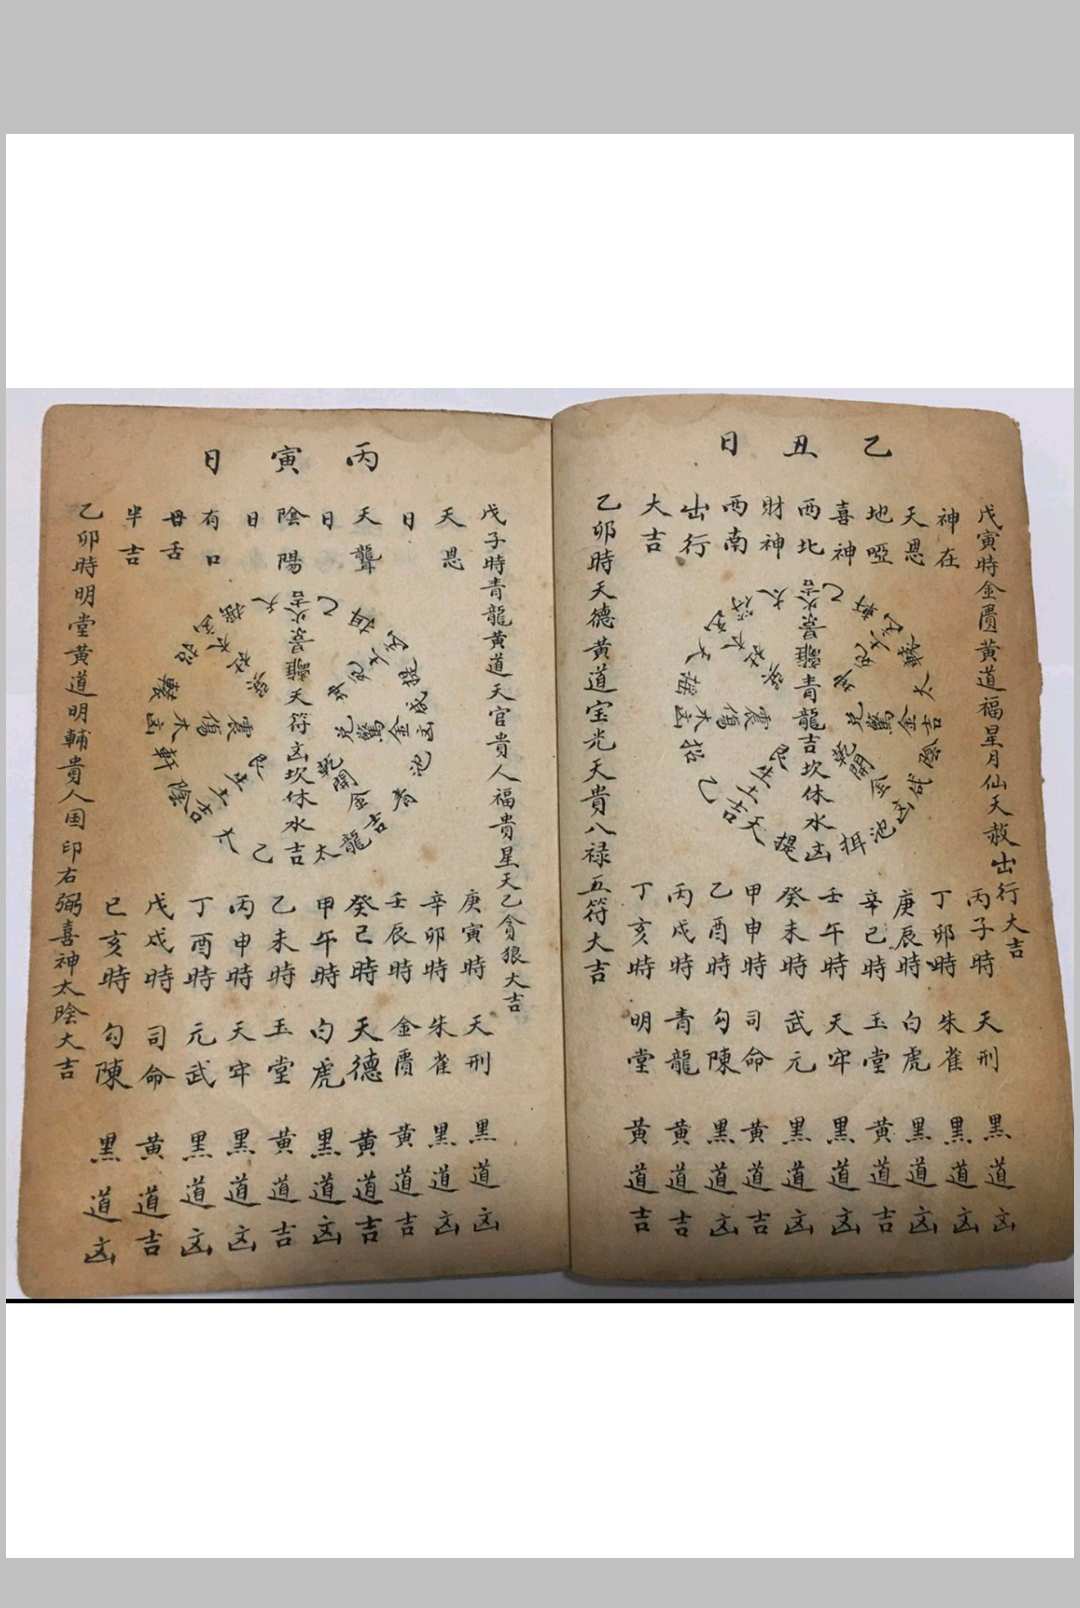 乙丑日
戊寅時金匱黃道福星月仙天赦出行大吉
神在
天恩
地啞
喜神
西北
財神
西南
出行
大吉
乙卯時天德黃道宝光天貴八禄五符大吉
离景火吉
震傷木凶
兌驚金吉
乾開金凶
艮生土吉
青龍吉坎休水凶
丙子時天刑黑道凶
丁卯時朱雀黑道凶
庚辰時白虎黑道凶
辛巳時玉堂黃道吉
壬午時天牢黑道凶
癸未時武元黑道凶
甲申時司命黃道吉
乙酉時勾陳黑道凶
丙戌時青龍黃道吉
丁亥時明堂黃道吉
丙寅日
戊子時青龍黃道天官貴人福貴星天乙貪狼大吉
天恩
日
天聾
日
陰陽
日
有口
毋舌
半吉
乙卯時明堂黃道明輔貴人国印右弼喜神太陰大吉
離景火吉
震傷木凶
兌驚金凶
乾開金吉
艮生土吉
天符凶坎休水吉
庚寅時天刑黑道凶
辛卯時朱雀黑道凶
壬辰時金匱黃道吉
癸巳時天德黃道吉
甲午時白虎黑道凶
乙未時玉堂黃道吉
丙申時天牢黑道凶
丁酉時元武黑道凶
戊戌時司命黃道吉
已亥時勾陳黑道凶